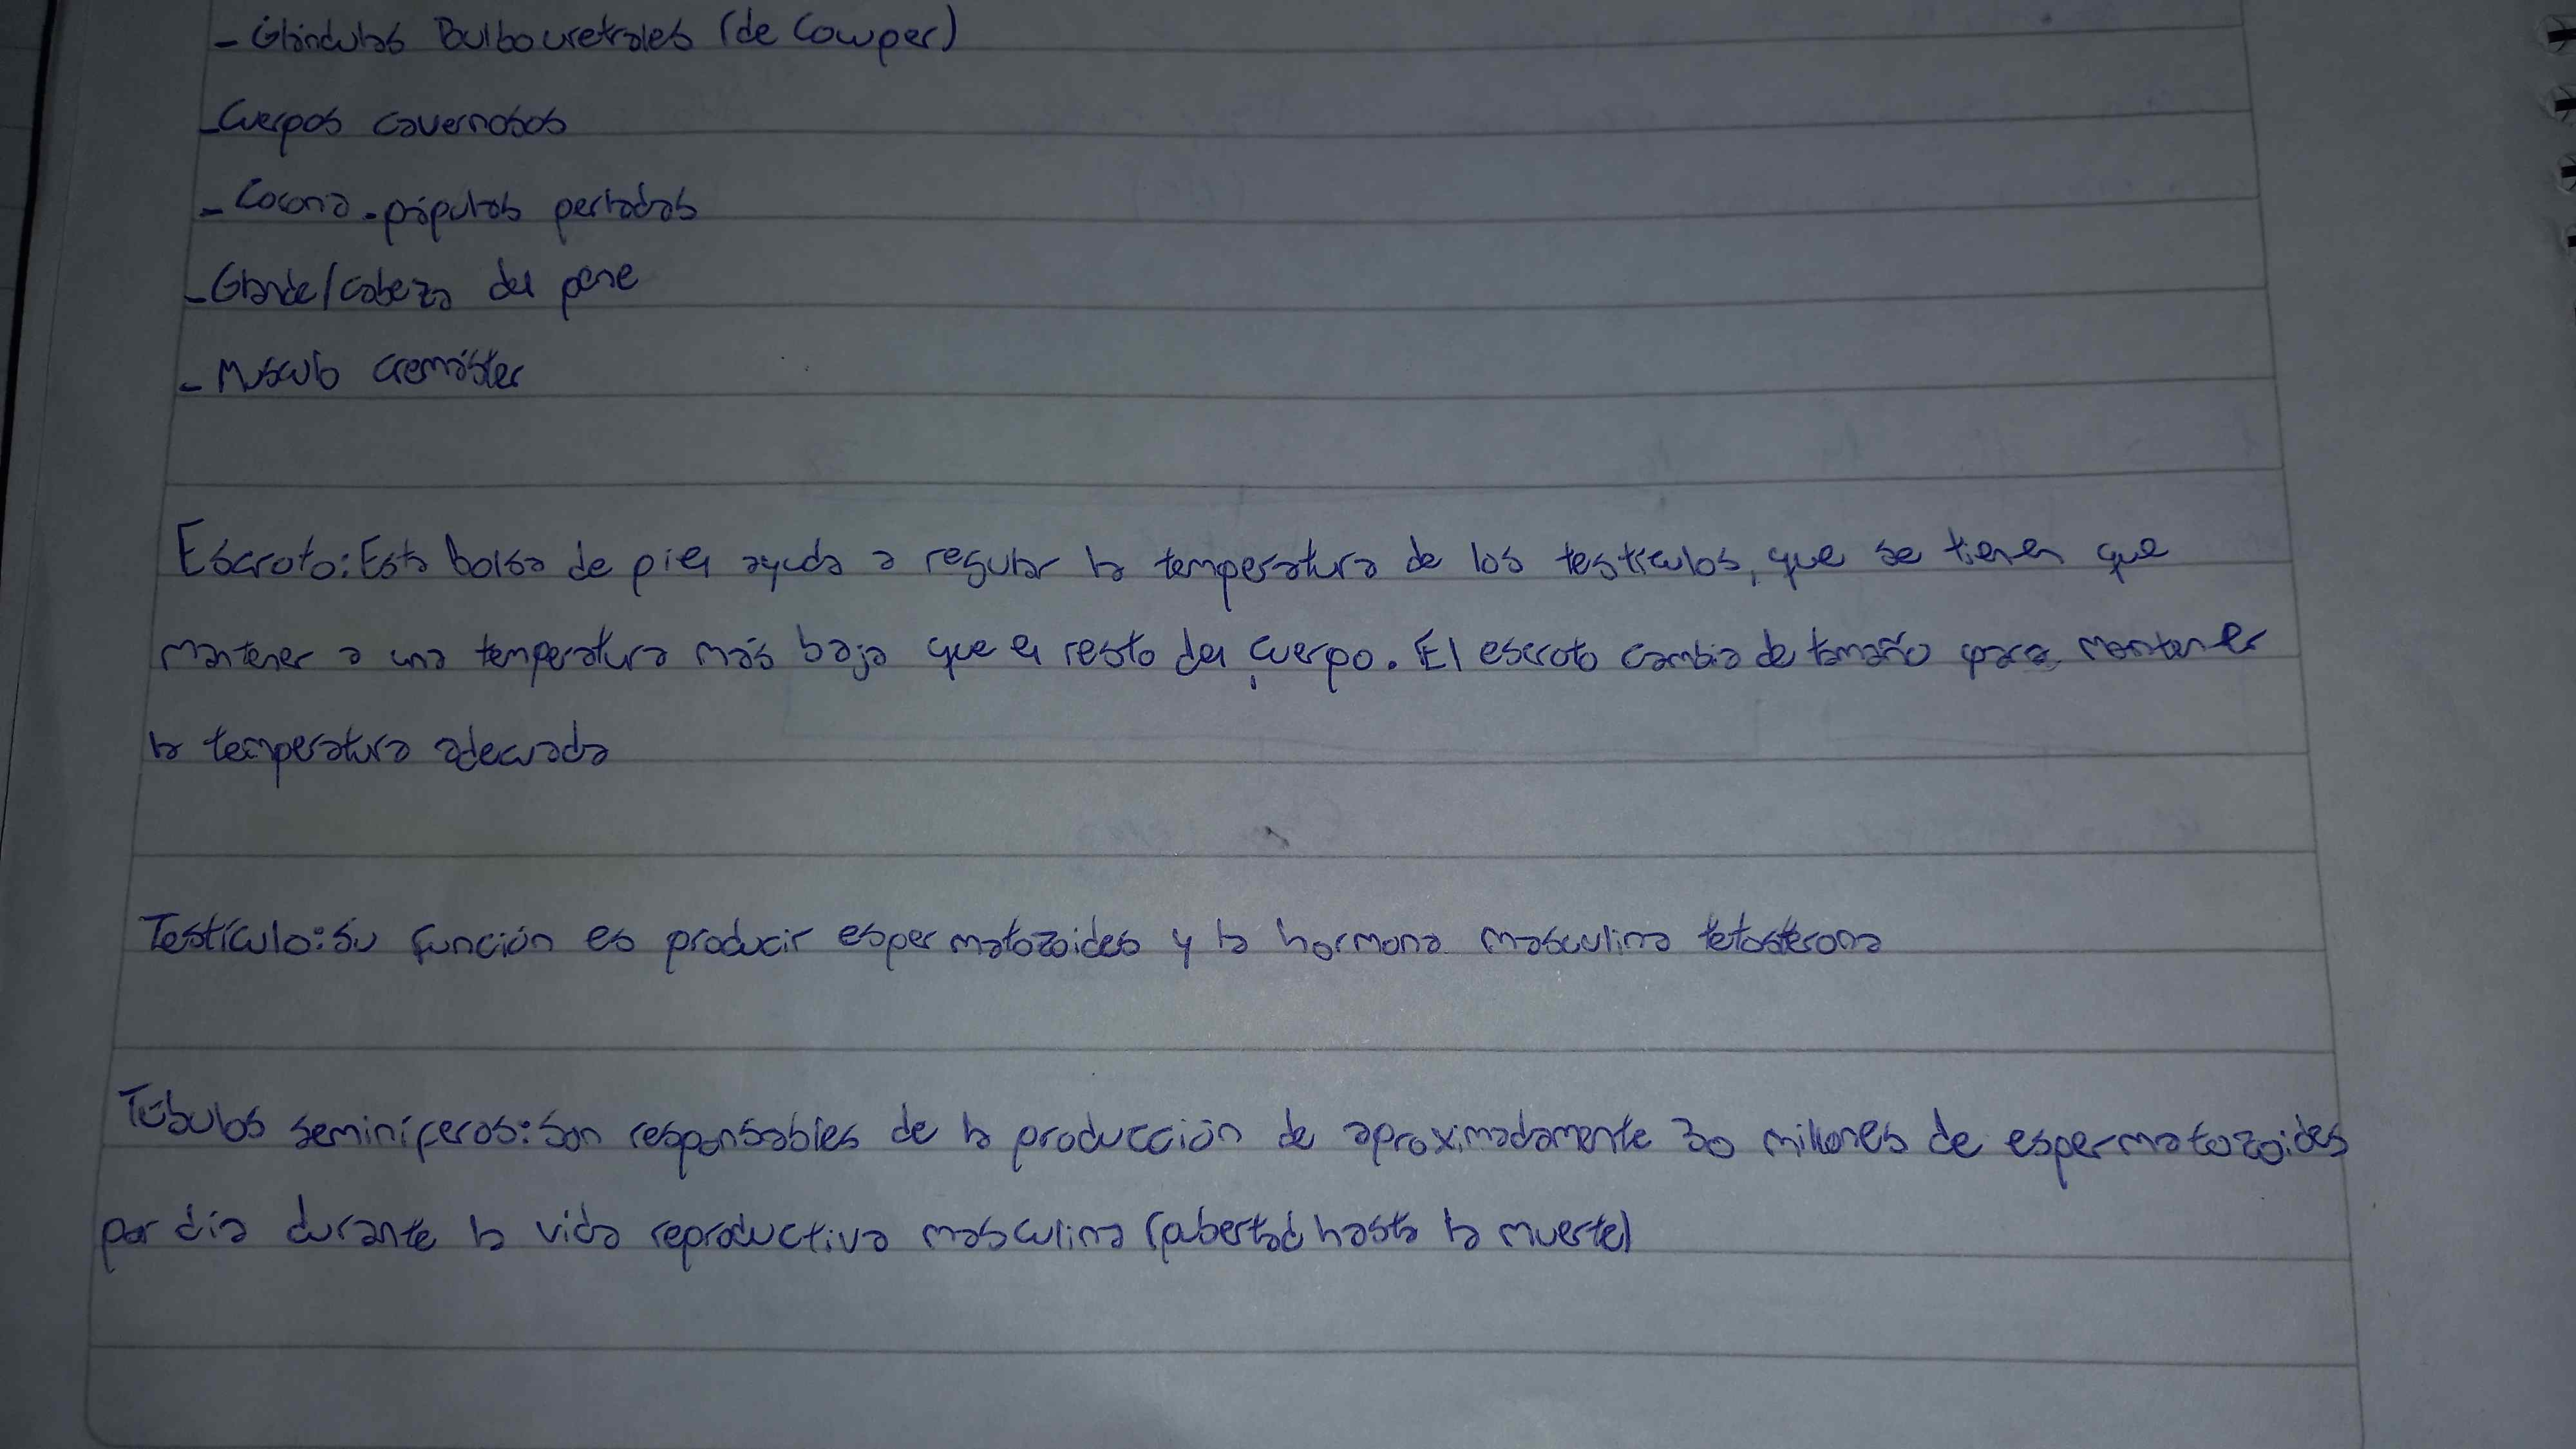 - Glándulas Bulbouretrales (de Cowper)
- Cuerpos cavernosos
- Corona - pápulas perladas
- Glande/cabeza del pene
- Musculo cremáster
Escroto: Esta bolsa de piel ayuda a regular la temperatura de los testículos, que se tienen que
mantener a una temperatura más baja que el resto del cuerpo. El escroto cambia de tamaño para mantener
la temperatura adecuada
Testículo: Su función es producir espermatozoides y la hormona masculina tetosterona
Túbulos seminíferos: Son responsables de la producción de aproximadamente 30 millones de espermatozoides
por día durante la vida reproductiva masculina (pubertad hasta la muerte)